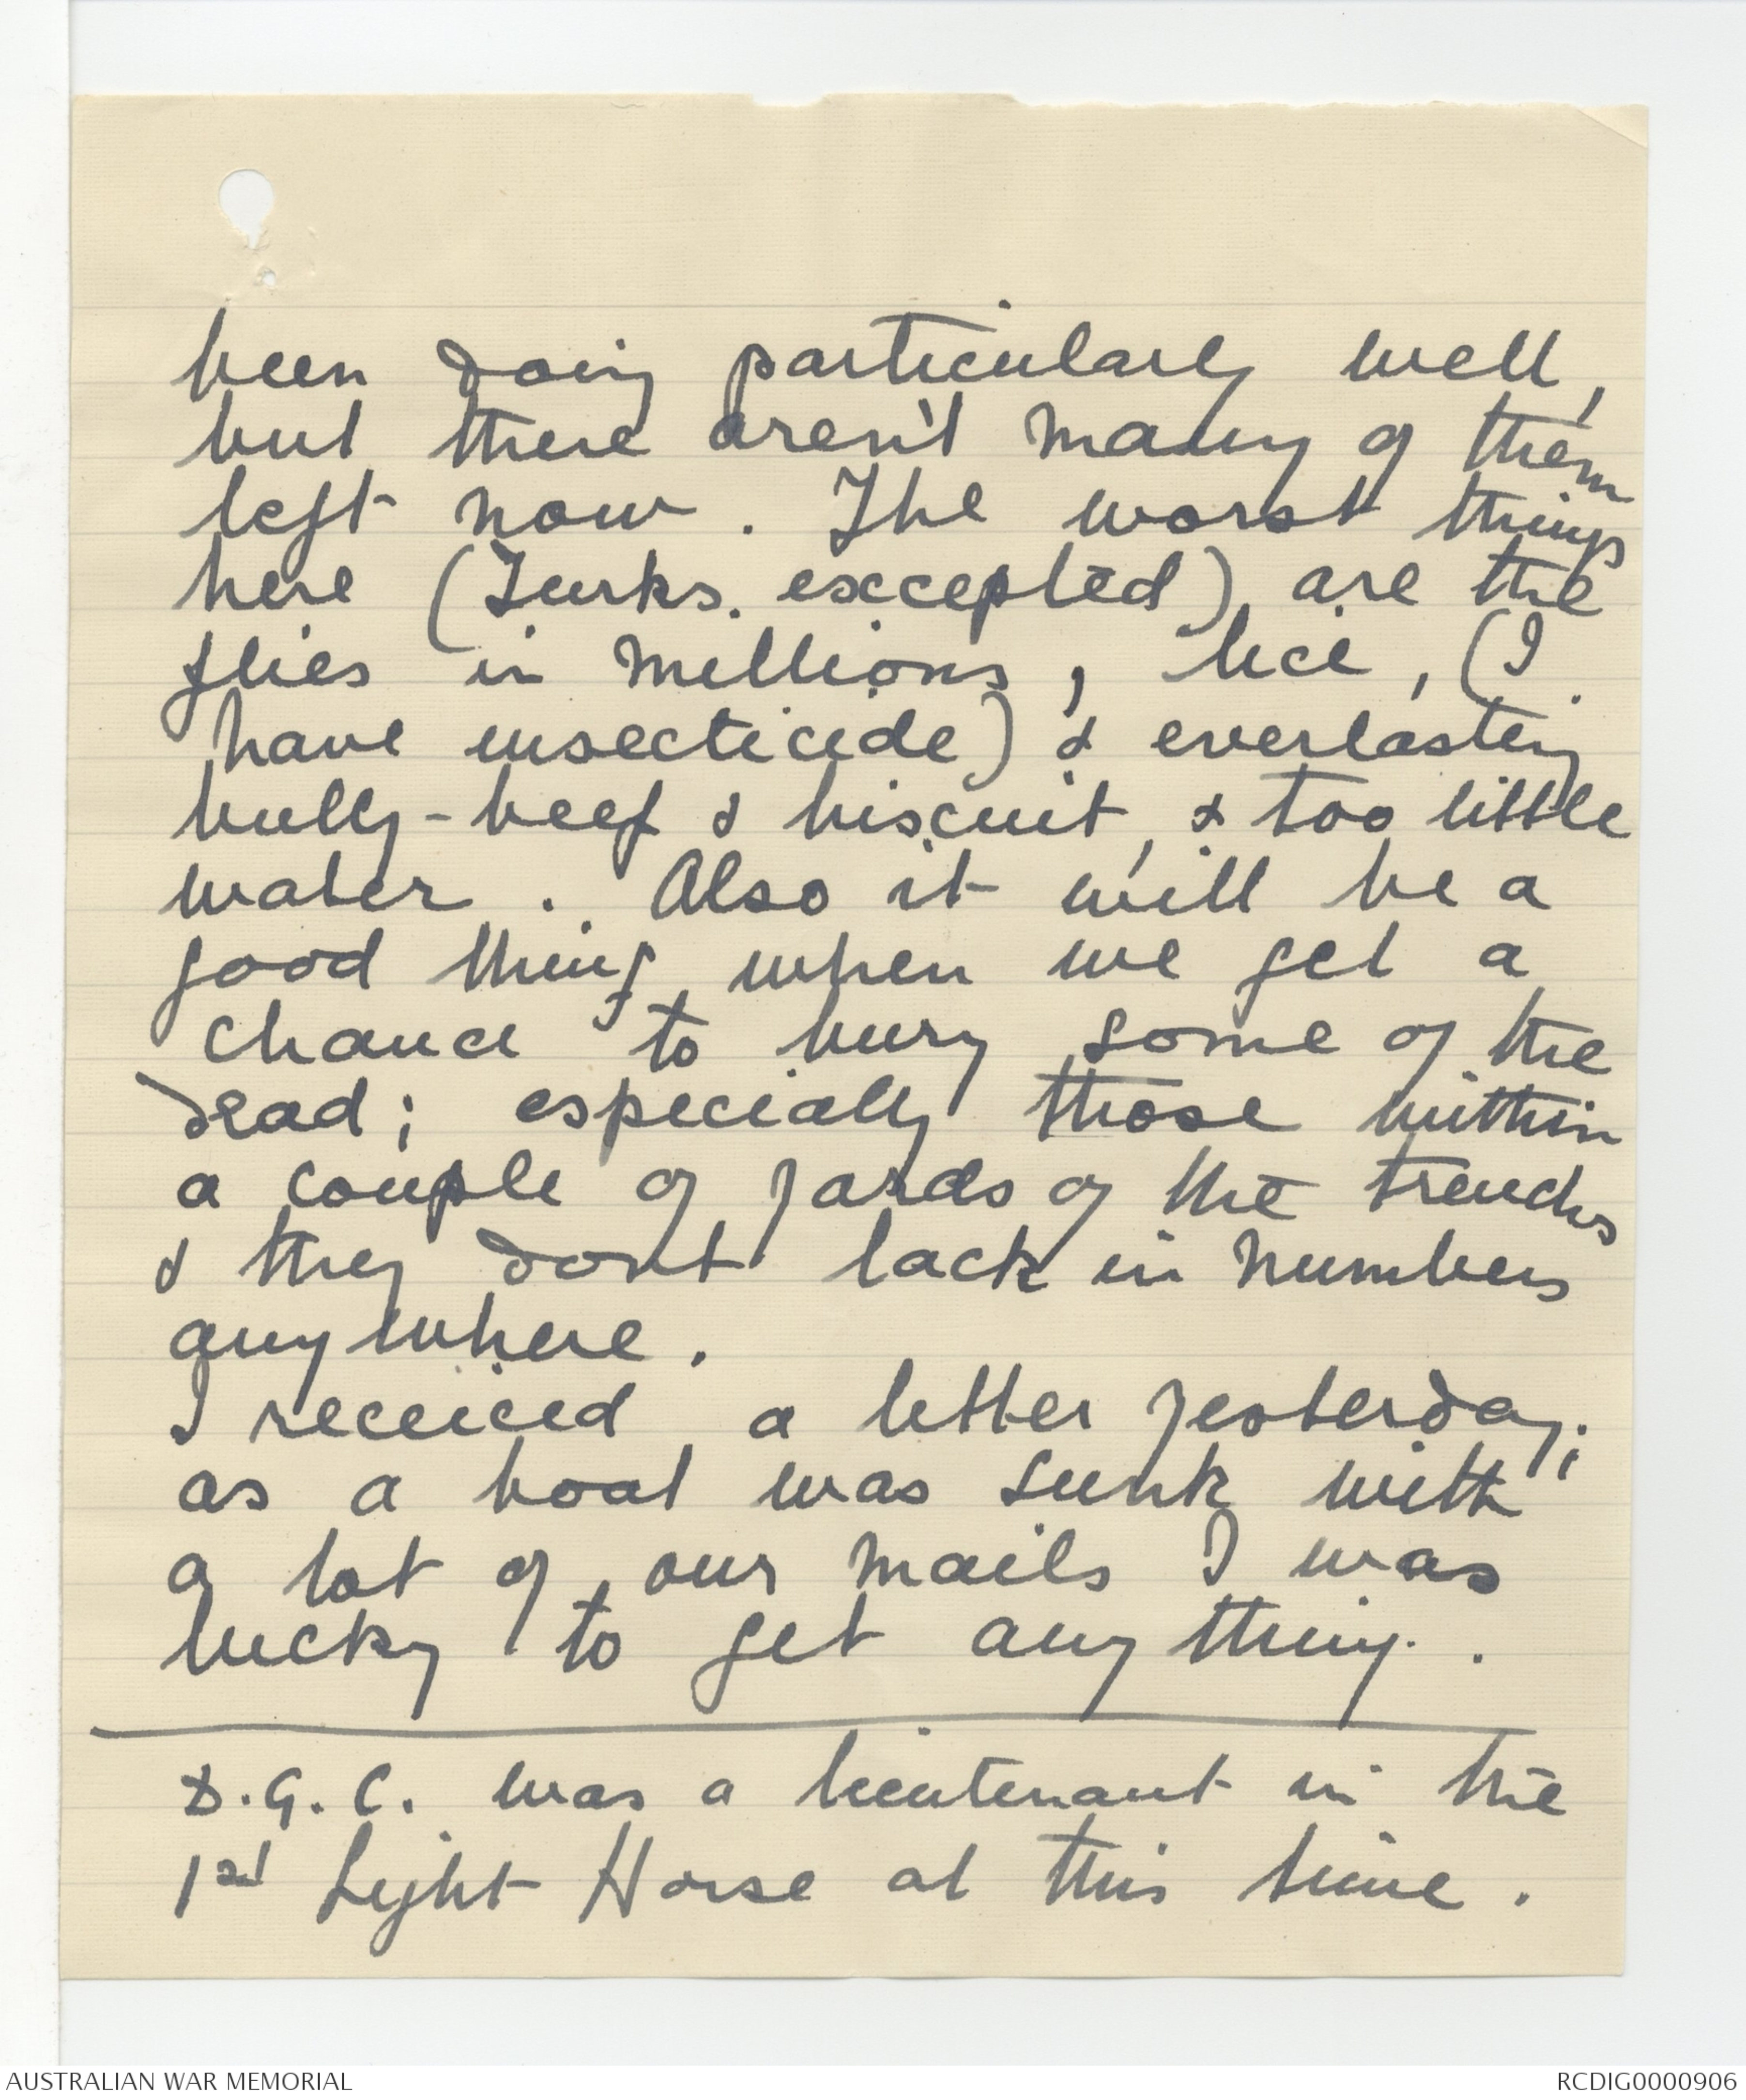 been doing particularly well,
but there aren't many of them
left now. The worst things
here (Turks excepted) are the
flies in millions, lice, (I
have insecticide) & everlasting
bully-beef & biscuit, & too little
water. Also it will be a
good thing when we get a
chance to bury some of the
dead; especially those within
a couple of yards of the trenches
& they dont lack in numbers
anywhere.
I received a letter yesterday;
as a boat was sunk with
a lot of our mails I was
lucky to get any thing.
D.G.C. was a lieutenant in the
1st Light Horse at this time.
AUSTRALIAN WAR MEMORIAL
RCDIG0000906